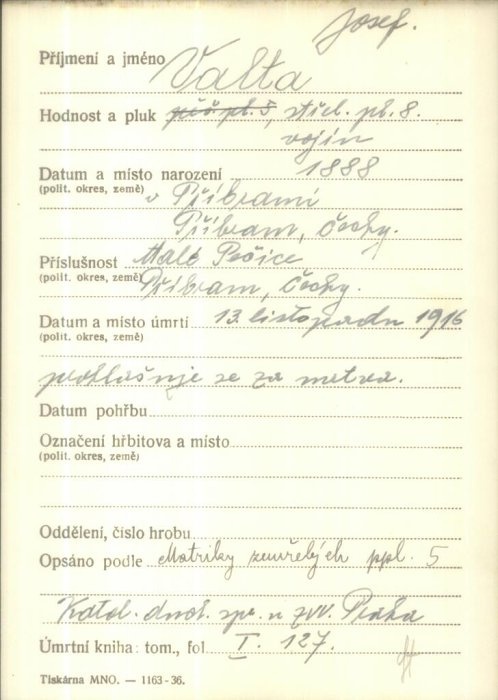 Josef.
Příjmení a jméno Valta
Hodnost a pluk pěš. pl. 5, střel. pl. 8.
vojín
Datum a místo narození 1888
(polit. okres, země) v Příbrami
Příbram, Čechy.
Příslušnost Malé Pečice
(polit. okres, země) Příbram, Čechy.
Datum a místo úmrtí 13. listopadu 1916
(polit. okres, země)
prohlašuje se za mrtva.
Datum pohřbu
Označení hřbitova a místo
(polit. okres, země)
Oddělení, číslo hrobu
Opsáno podle Matriky zemřelých ppl. 5
Katol. duch. spr. u zvv. Praha
Úmrtní kniha: tom., fol. I. 127.
Tiskárna MNO. — 1163-36.